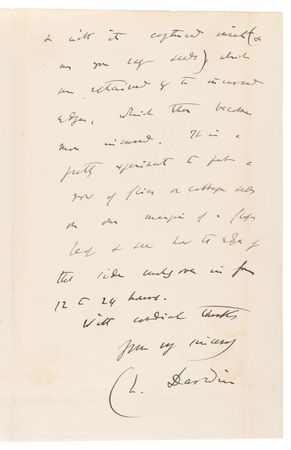 & with it captured insect (&
in your case seeds) which
are retained by the incurved
edges, which then become
more incurved. It is a
pretty experiment to put a
row of flies or cabbage seeds
on one margin of a
leaf & see how the edge of
this side curls over in from
12 to 24 hours.
With cordial thanks
Yours very sincerely
Ch. Darwin